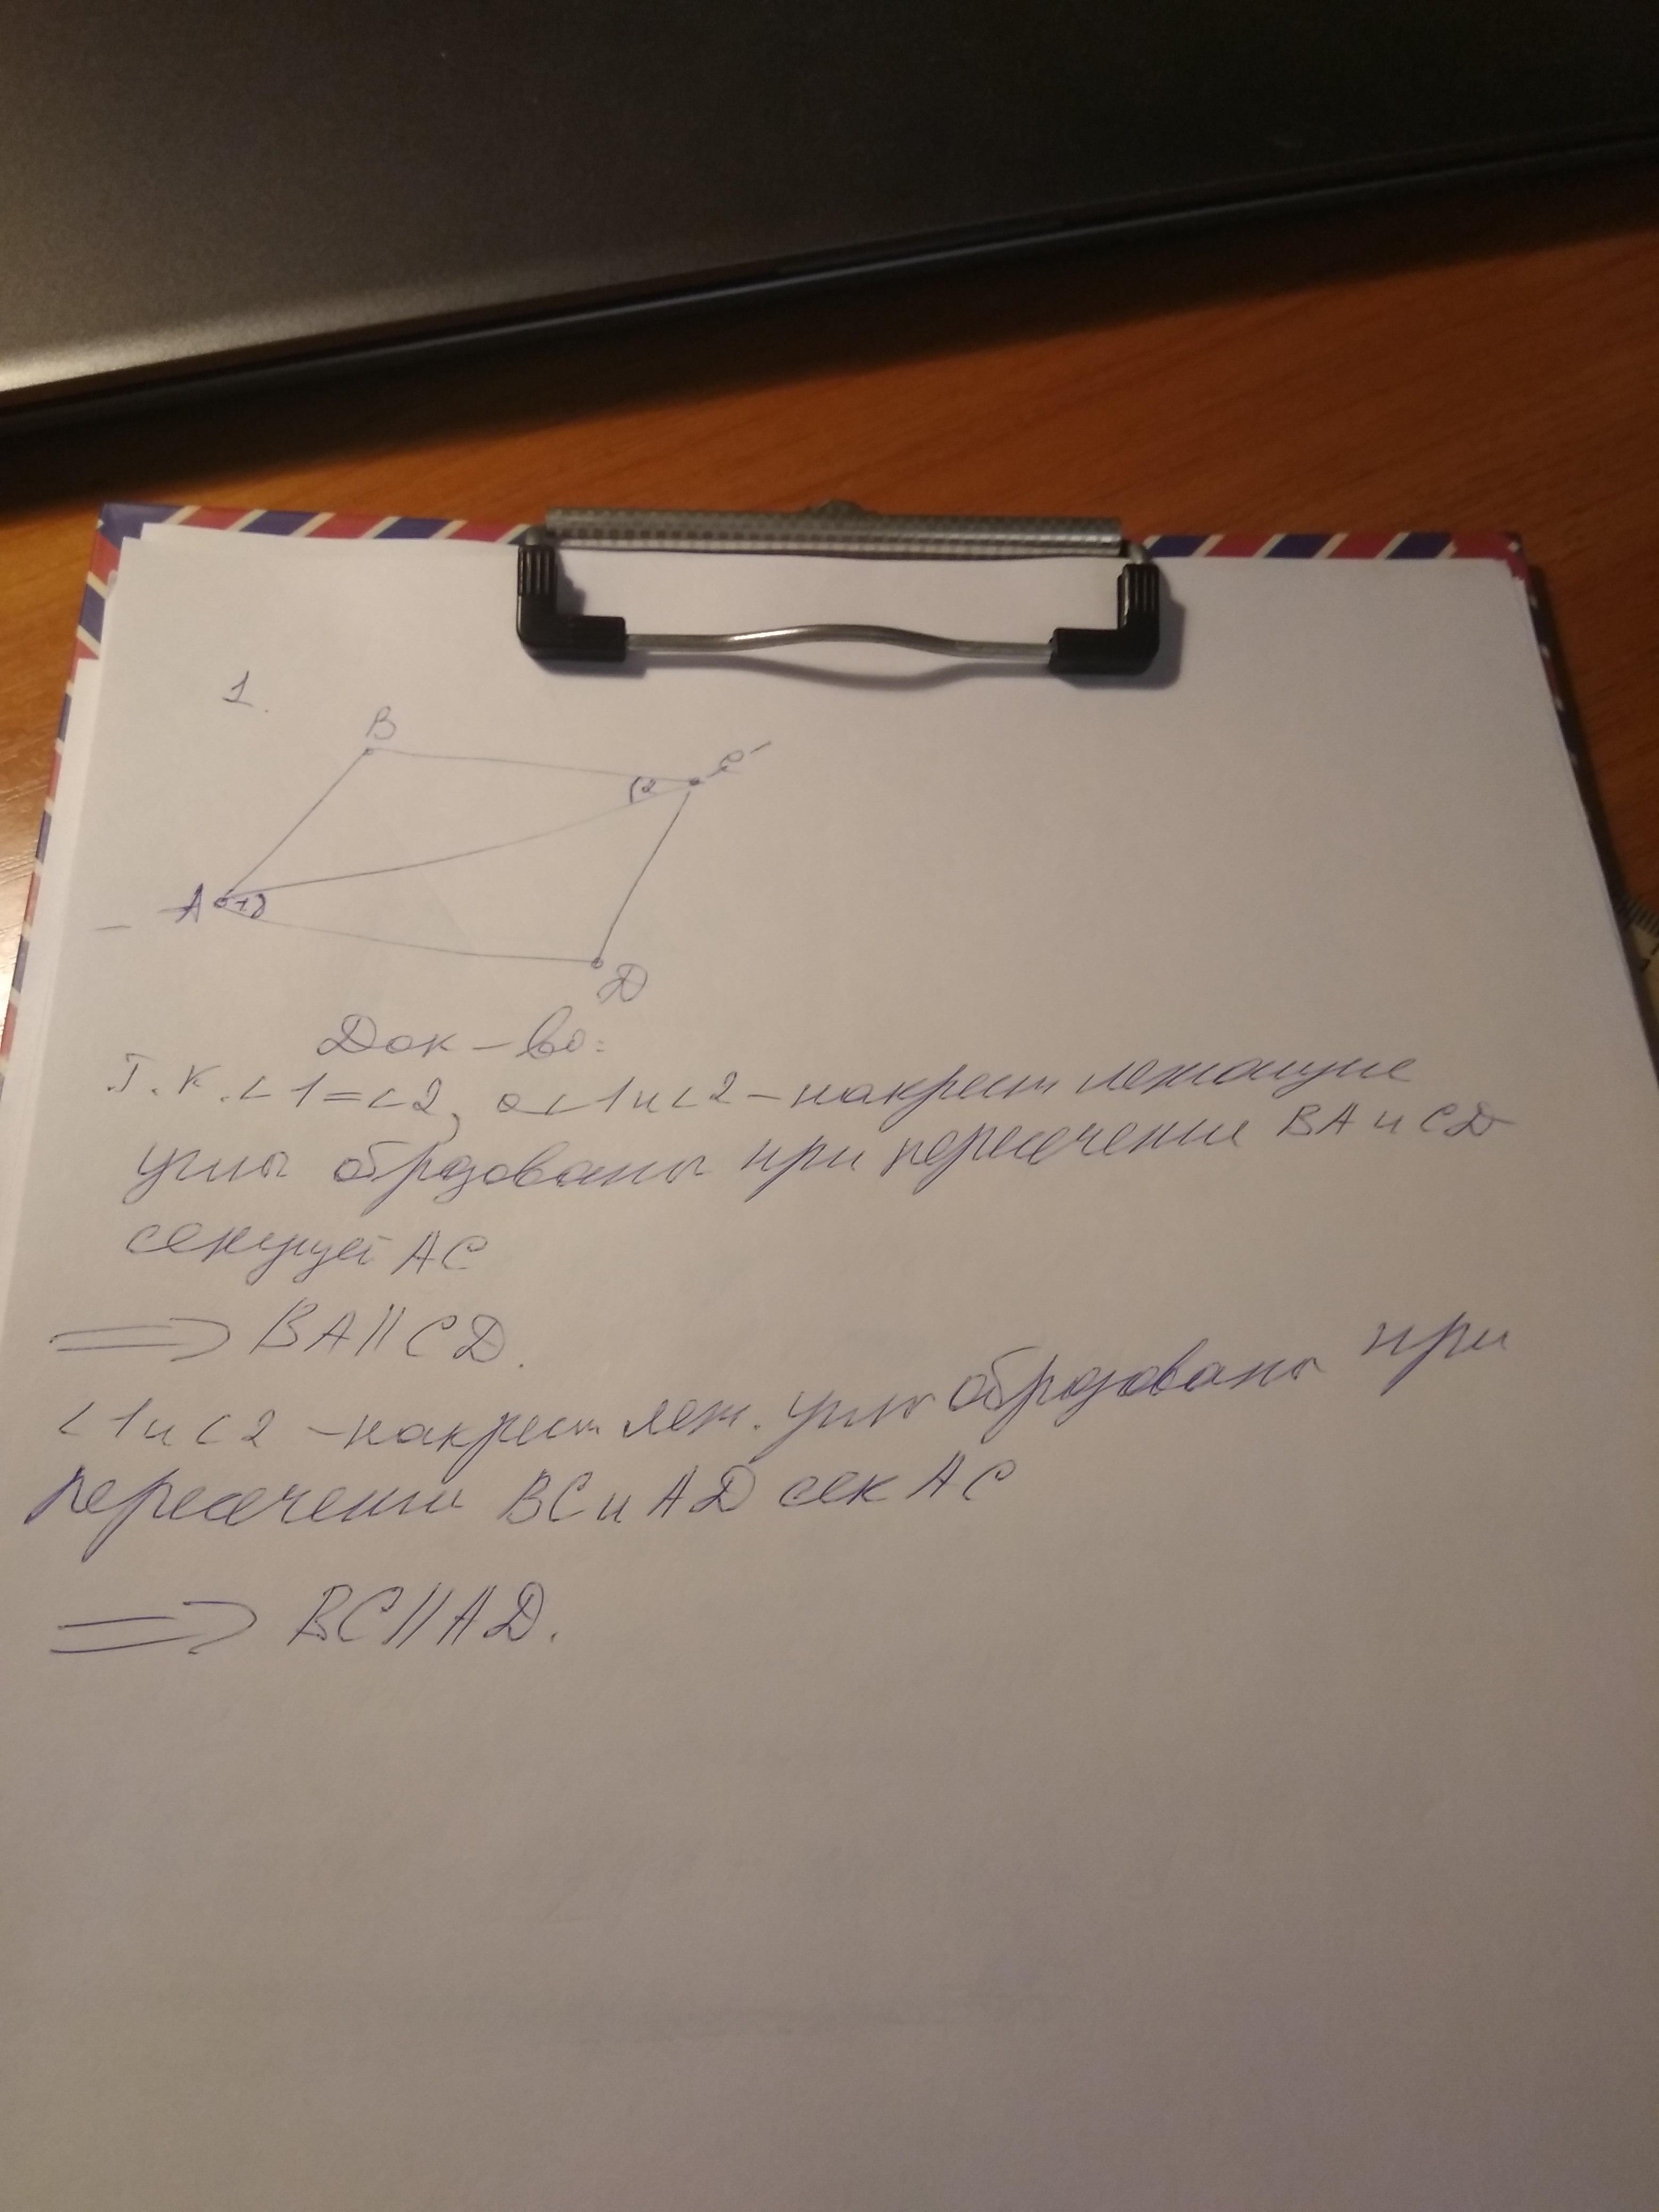 1.
B
C
2
A
1
D
Док-во:
Т.к. <1=<2, а <1 и <2 - накрест лежащие
углы образованы при пересечении BA и CD
секущей AC
=> BA||CD.
<1 и <2 - накрест леж. углы образованы при
пересечении BC и AD сек AC
=> BC||AD.